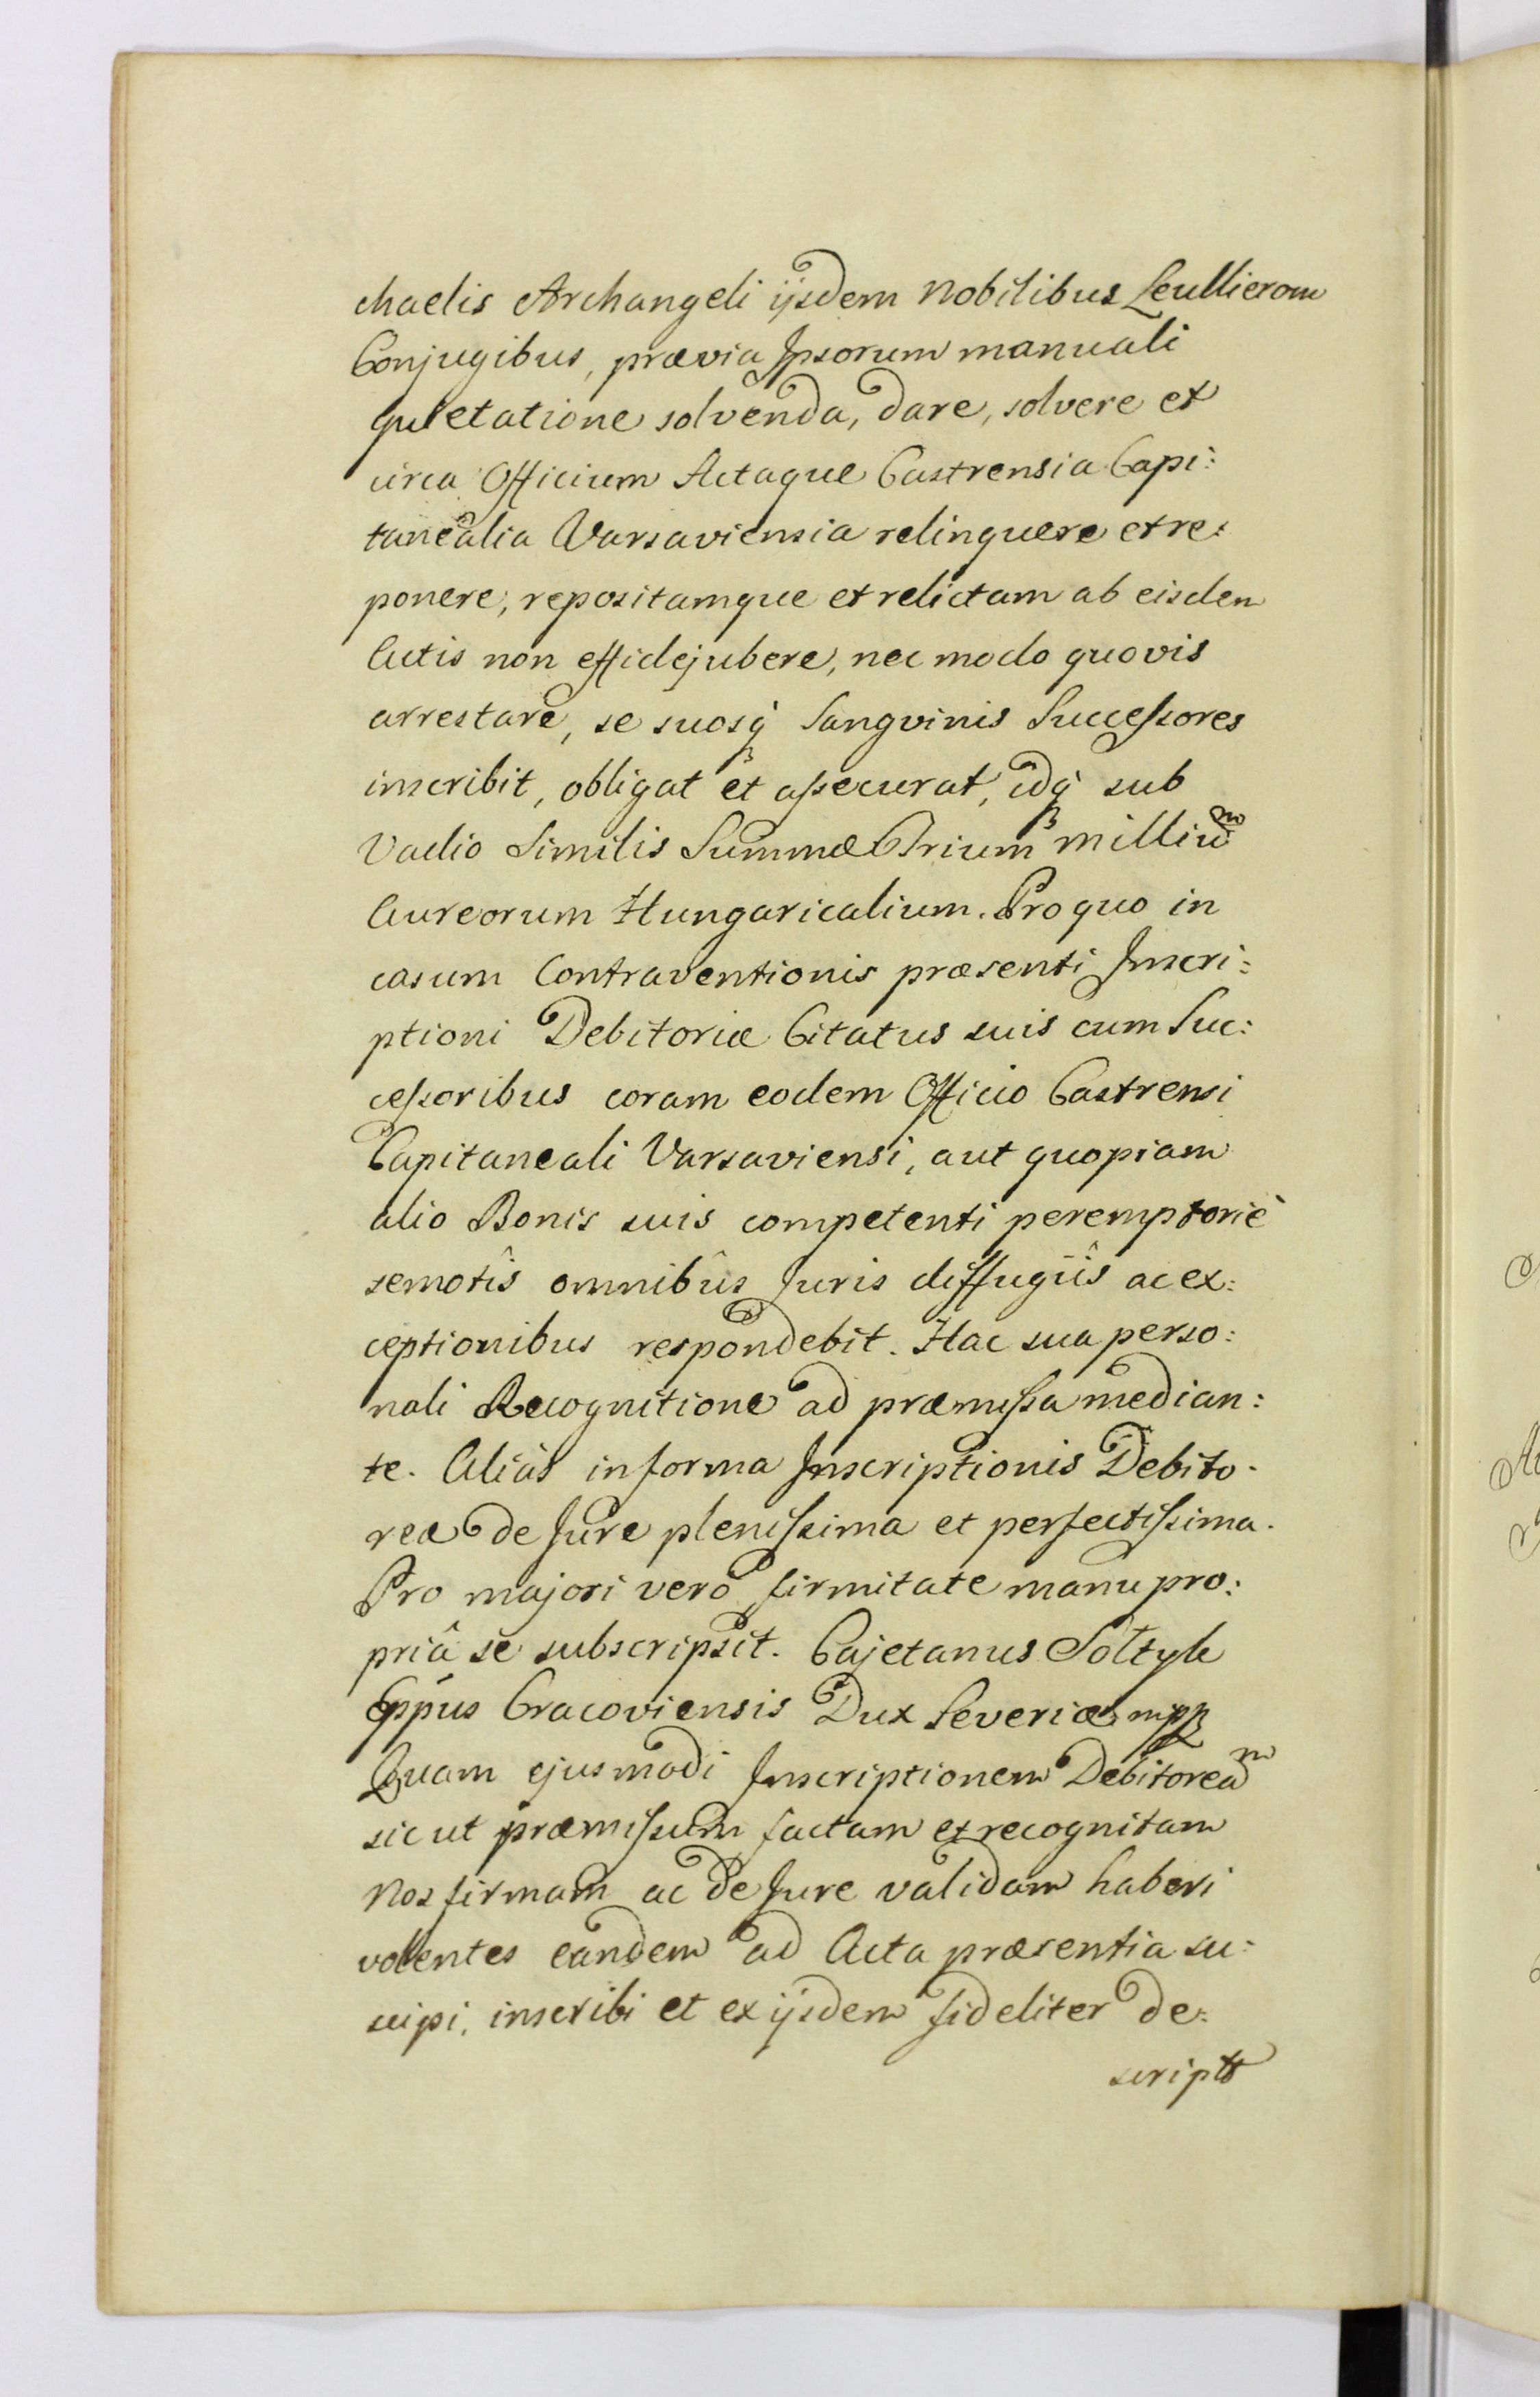 chaelis Archangeli ijsdem Nobilibus Leullierom
Conjugibus, prævia Ipsorum manuali
quietatione solvenda, dare, solvere et
circa Officium Actaque Castrensia Capi:
tanealia Varsaviensia relinquere et re:
ponere, repositamque et relictam ab eisdem
Actis non effidejubere, nec modo quovis
arrestare, se suosq́ Sangvinis Successores
inscribit, obligat et assecurat, idq́ sub
Vadio Similis Summæ Trium millium
Aureorum Hungaricalium. Pro quo in
casum Contraventionis præsenti Inscri:
ptioni Debitoriæ Citatus suis cum Suc:
cessoribus coram eodem Officio Castrensi
Capitaneali Varsaviensi, aut quopiam
alio Bonis suis competenti peremptoriè
semotîs omnibûs Juris diffugiîs ac ex:
ceptionibus respondebit. Hac sua perso:
nali Recognitione ad præmissa median:
te. Aliàs in forma Inscriptionis Debito-
reæ de Jure plenissima et perfectissima.
Pro majori verò firmitate manu pro:
priâ se subscripsit. Cajetanus Sołtyk
Eppus Cracoviensis Dux Severiæ mpp
Quam ejusmodi Inscriptionem Debitoream
sic ut præmissum factam et recognitam
Nos firmam ac de Jure validam haberi
volentes eandem ad Acta præsentia su:
scipi, inscribi et ex ijsdem fideliter de:
scriptt